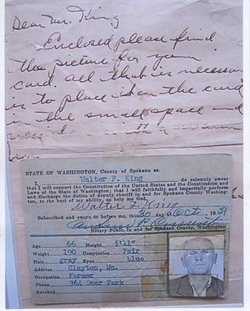 Dear Mr. King
Enclosed please find
the picture for your
card. all that is necessary
is to place it on the card
in the small space and
STATE OF WASHINGTON, County of Spokane ss.
Walter F. King do solemnly swear
that I will support the Constitution of the United States and the Constitution and
Laws of the State of Washington; that I will faithfully and impartially perform
and discharge the duties of
to the best of my ability, so help me God.
Walter F. King
Subscribed and sworn to before me, this 30 day of Oct.
Notary Public, in and for Spokane County, Washington
Age 66 Height 5'11"
Weight 190 Complexion Fair
Hair gray Eyes blue
Address Clayton, Wn.
Occupation Farmer
Phone 364 Deer Park